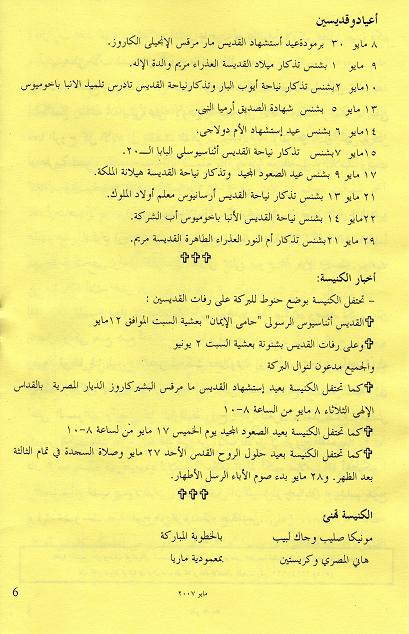 أعيادوقديسين
٨ مايو ٣٠ برمودةعيد أستشهاد القديس مار مرقس الإنجيلى الكاروز.
٩ مايو ١ بشنس تذكار ميلاد القديسة العذراء مريم والدة الإله.
١٠مايو ٢بشنس تذكار نياحة أيوب البار وتذكارنياحة القديس تادرس تلميذ الانبا باخوميوس
١٣ مايو ٥ بشنس شهادة الصديق أرميا النبى.
١٤مايو ٦ بشنس عيد إستشهاد الأم دولاجى.
١٥مايو ٧بشنس تذكار نياحة القديس أثناسيوسلى البابا الـــ٢٠.
١٧ مايو ٩ بشنس عيد الصعود المجيد وتذكار نياحة القديسة هيلانة الملكة.
٢١ مايو ١٣ بشنس تذكار نياحة القديس أرسانيوس معلم أولاد الملوك.
٢٢مايو ١٤ بشنس نياحة القديس الأنبا باخوميوس أب الشركة.
٢٩ مايو ٢١بشنس تذكار أم النور العذراء الطاهرة القديسة مريم.
✞✞✞
أخبار الكنيسة:
– تحتفل الكنيسة بوضع حنوط للبركة على رفات القديسين :
✞القديس أثناسيوس الرسولى "حامى الإيمان" بعشية السبت الموافق ١٢مايو
✞وعلى رفات القديس بشنونة بعشية السبت ٢ يونيو
والجميع مدعون لنوال البركة
✞كما تحتفل الكنيسة بعيد إستشهاد القديس ما مرقس البشيركاروز الديار المصرية بالقداس
الإلهى الثلاثاء ٨ مايو من الساعة ٨-١٠
✞كما تحتفل الكنيسة بعيد الصعود المجيد يوم الخميس ١٧ مايو من لساعة ٨-١٠
✞كما تحتفل الكنيسة بعيد حلول الروح القدس الأحد ٢٧ مايو وصلاة السجدة في تمام الثالثة
بعد الظهر. و٢٨ مايو بدء صوم الأباء الرسل الأطهار.
✞✞✞
الكنيسة تهنئ
مونيكا صليب وجاك لبيب بالخطوبة المباركة
هاني المصري وكريستين بمعمودية ماريا
مايو ٢٠٠٧
6